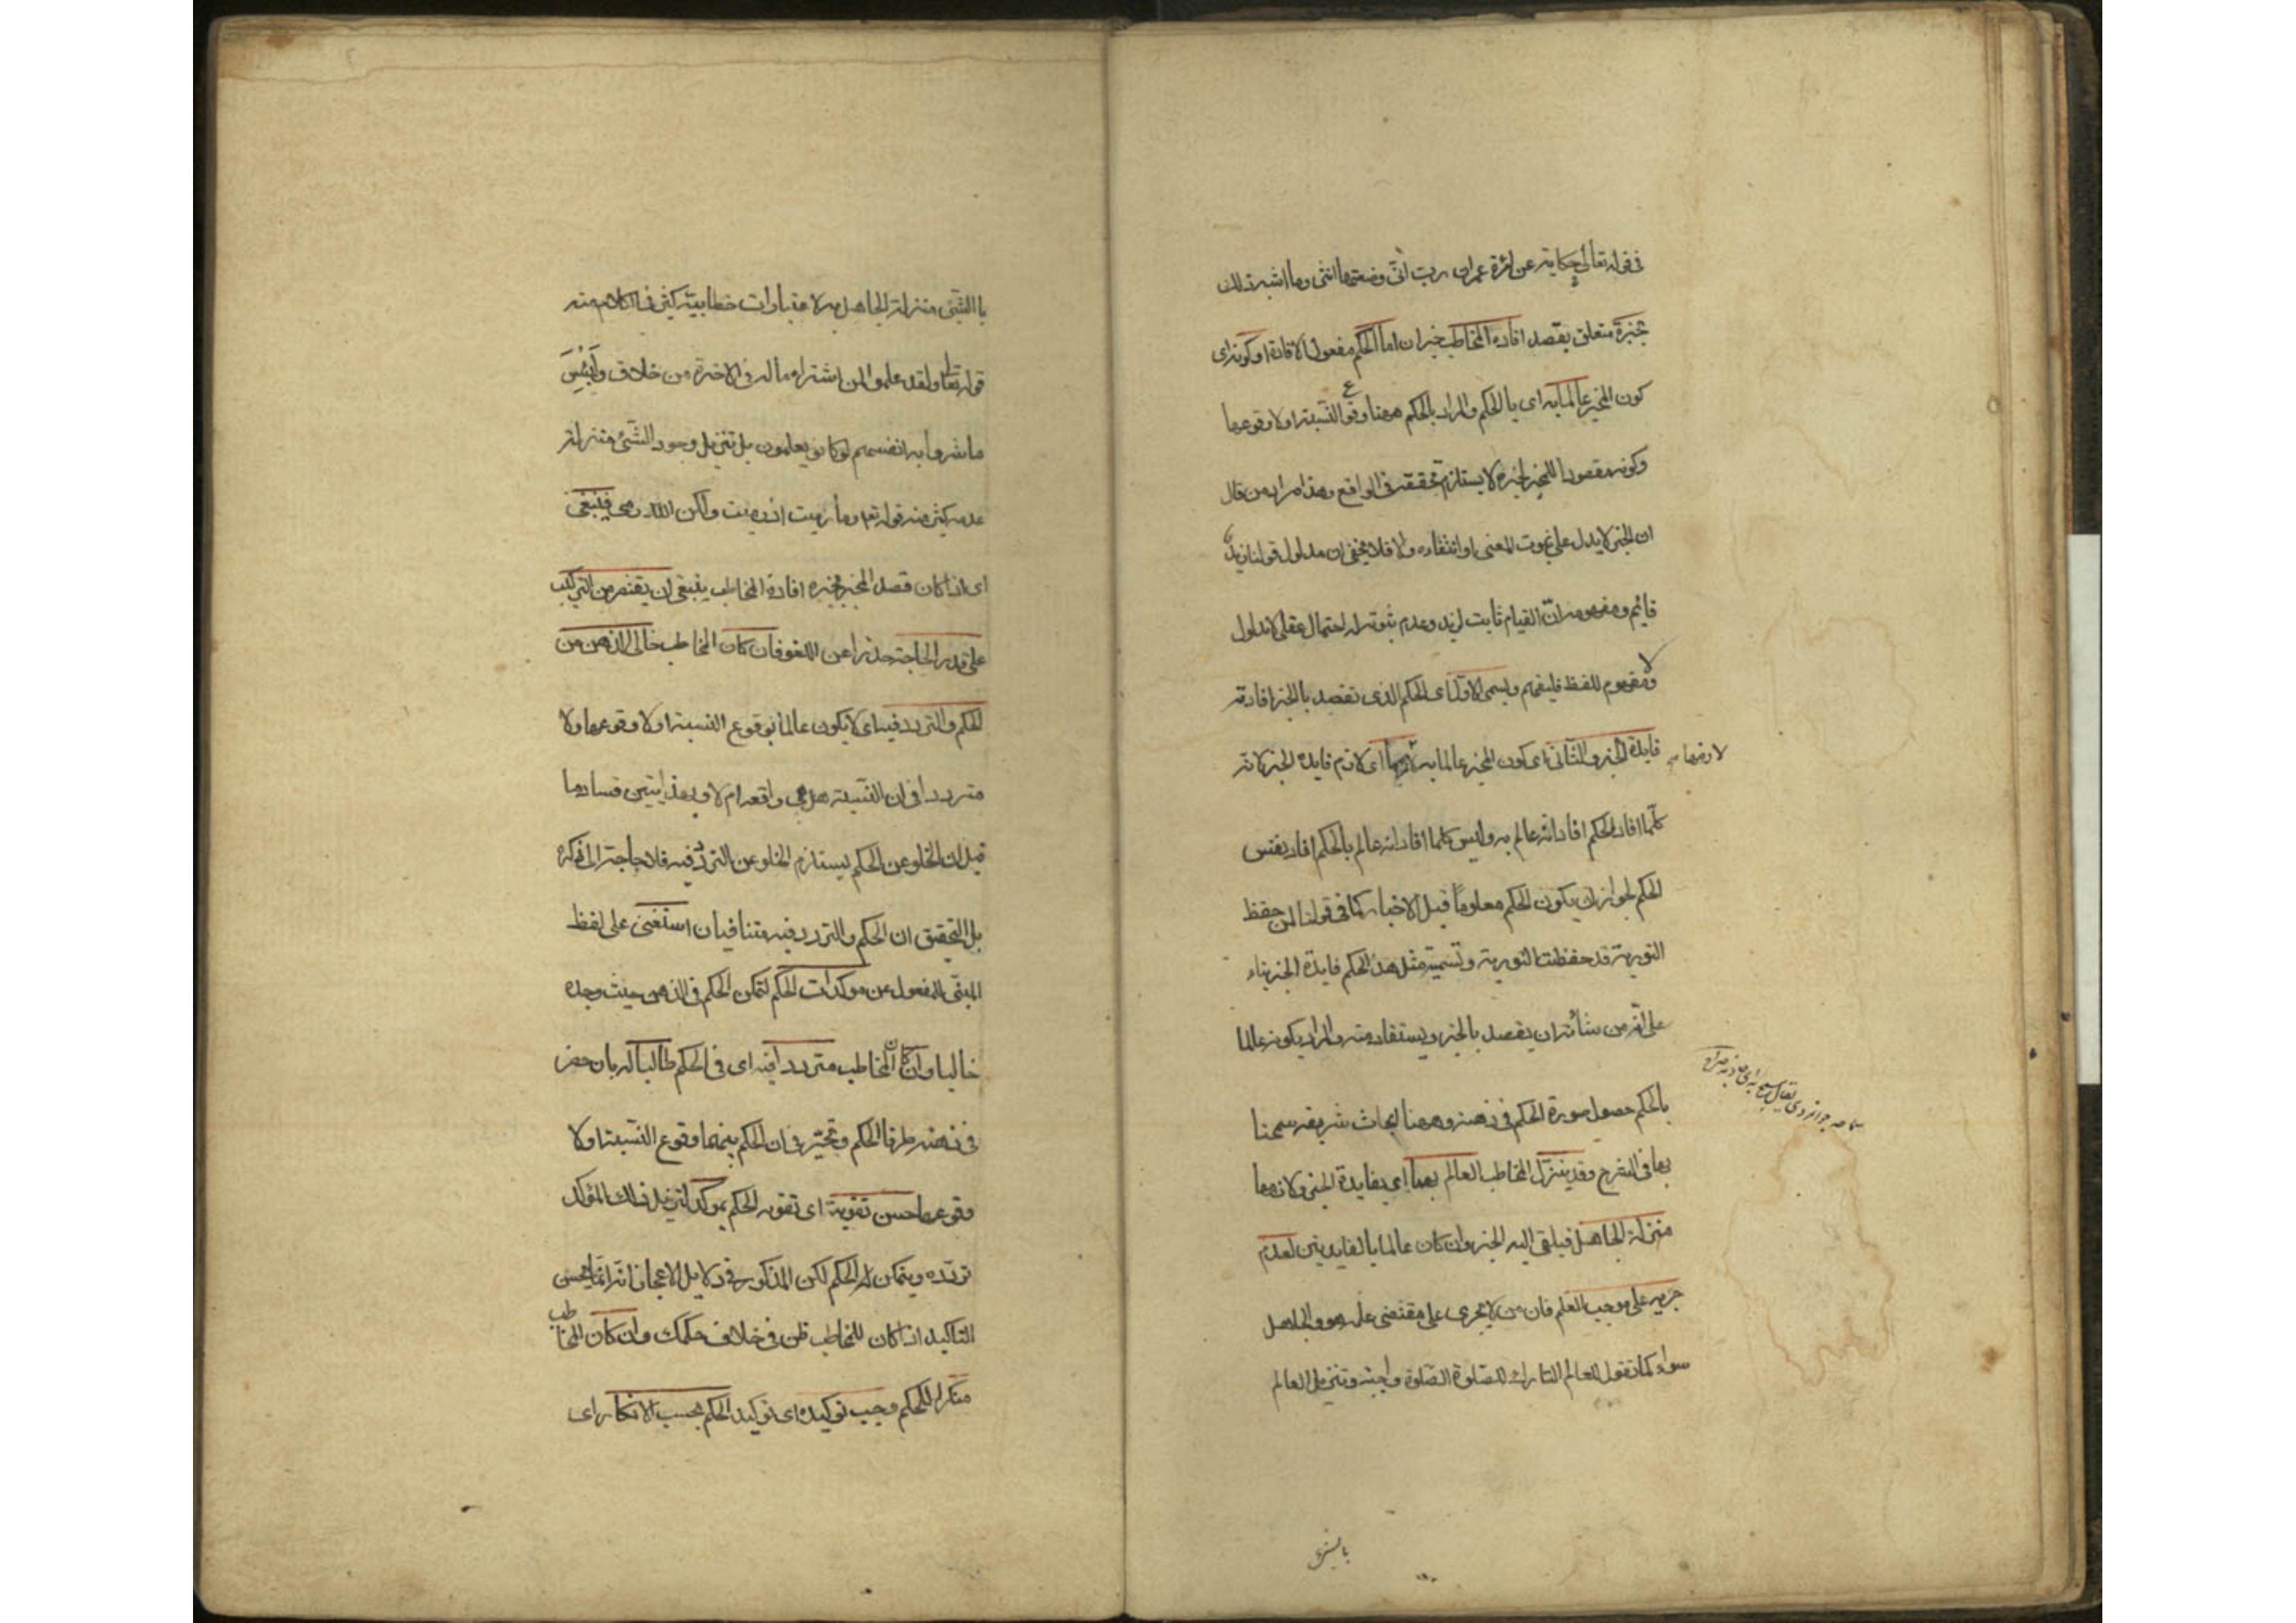 فى قوله تعالى حكاية عن امرأة عمران رب انى وضعتها انثى وما اشبه ذلك
بخبره متعلق بقصد افادة المخاطب خبر ان اما الحكم مفعول الافادة او كونه اى
كون المخبر عالما به اى بالحكم والمراد بالحكم ههنا وقوع النسبة او لا وقوعها
وكونه مقصودا للمخبر بخبره لا يستلزم تحققه فى الواقع وهذا مراد من قال
ان الخبر لا يدل على ثبوت المعنى او انتفائه والا فلا يخفى ان مدلول قولنا زيد
قائم ومفهومه ان القيام ثابت لزيد وعدم ثبوته له احتمال عقلى لا مدلول
ولا مفهوم للفظ فليفهم ويسمى الاول اى الحكم الذى تقصد بالخبر افادته
فايدة الخبر والثانى اى كون المخبر عالما به لازمها اى لازم فايدة الخبر لانه
لازمها
كلما افاد الحكم افاد انه عالم به وليس كلما افاد انه عالم بالحكم افاد نفس
الحكم لجواز ان يكون الحكم معلوما قبل الاخبار كما فى قولنا لمن حفظ
التورية قد حفظت التورية وتسمية مثل هذا الحكم فايدة الخبر بناء
على انه من شأنه ان يقصد بالخبر ويستفاد منه والمراد بكونه عالما
بالحكم حصول صورة الحكم فى ذهنه وههنا ابحاث شريفة سمحنا
بها فى الشرح وقد ينزل المخاطب العالم بهما اى بفايدة الخبر ولازمها
منزلة الجاهل فيلقى اليه الخبر وان كان عالما بالفايدتين لعدم
جريه على موجب العلم فان من لا يجرى على مقتضى علمه هو والجاهل
سواء كما تقول للعالم التارك للصلوة الصلوة واجبة وتنزيل العالم
بالشئ
بالشئ منزلة الجاهل به لاعتبارات خطابية كثير فى الكلام منه
قوله تعالى ولقد علموا لمن اشتراه ماله فى الاخرة من خلاق ولبئس
ما شروا به انفسهم لو كانوا يعلمون بل تنزيل وجود الشئ منزلة
عدمه كثير منه قوله تعم وما رميت اذ رميت ولكن الله رمى فينبغى
اى اذا كان قصد المخبر بخبره افادة المخاطب ينبغى ان يقتصر من التركيب
على قدر الحاجة حذرا عن اللغو فان كان المخاطب خالى الذهن من
الحكم والتردد فيه اى لا يكون عالما بوقوع النسبة او لا وقوعها ولا
مترددا فى ان النسبة هل هى واقعة ام لا وبهذا يتبين فساد ما
قيل ان الخلو عن الحكم يستلزم الخلو عن التردد فيه فلا حاجة الى ذكره
بل التحقيق ان الحكم والتردد فيه متنافيان استغنى على لفظ
المبنى للمفعول عن مؤكدات الحكم لتمكن الحكم فى الذهن حيث وجده
خاليا وان كان المخاطب مترددا فيه اى فى الحكم طالبا له بان حضر
فى ذهنه طرفا الحكم وتحير فى ان الحكم بينهما وقوع النسبة او لا
وقوعها حسن تقوية اى تقوية الحكم بمؤكد ليزيل ذلك المؤكد
تردده ويتمكن له الحكم لكن المذكور فى دلايل الاعجاز انه انما يحسن
التأكيد اذا كان للمخاطب ظن فى خلاف حكمك وان كان المخاطب
منكرا للحكم وجب توكيده اى توكيد الحكم بحسب الانكار اى